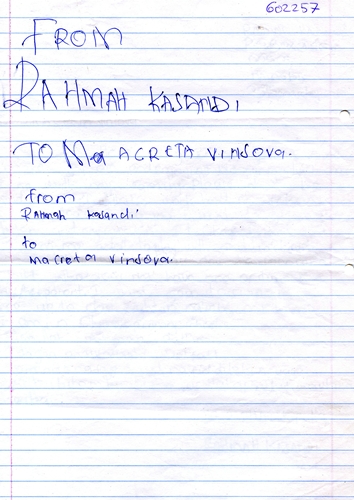 602257
FROM
RAHMAH KASANDI
TO Ma ACRETA VINSOVA.
from
RAHMAH Kasandi
to
Macreta Vinsova.